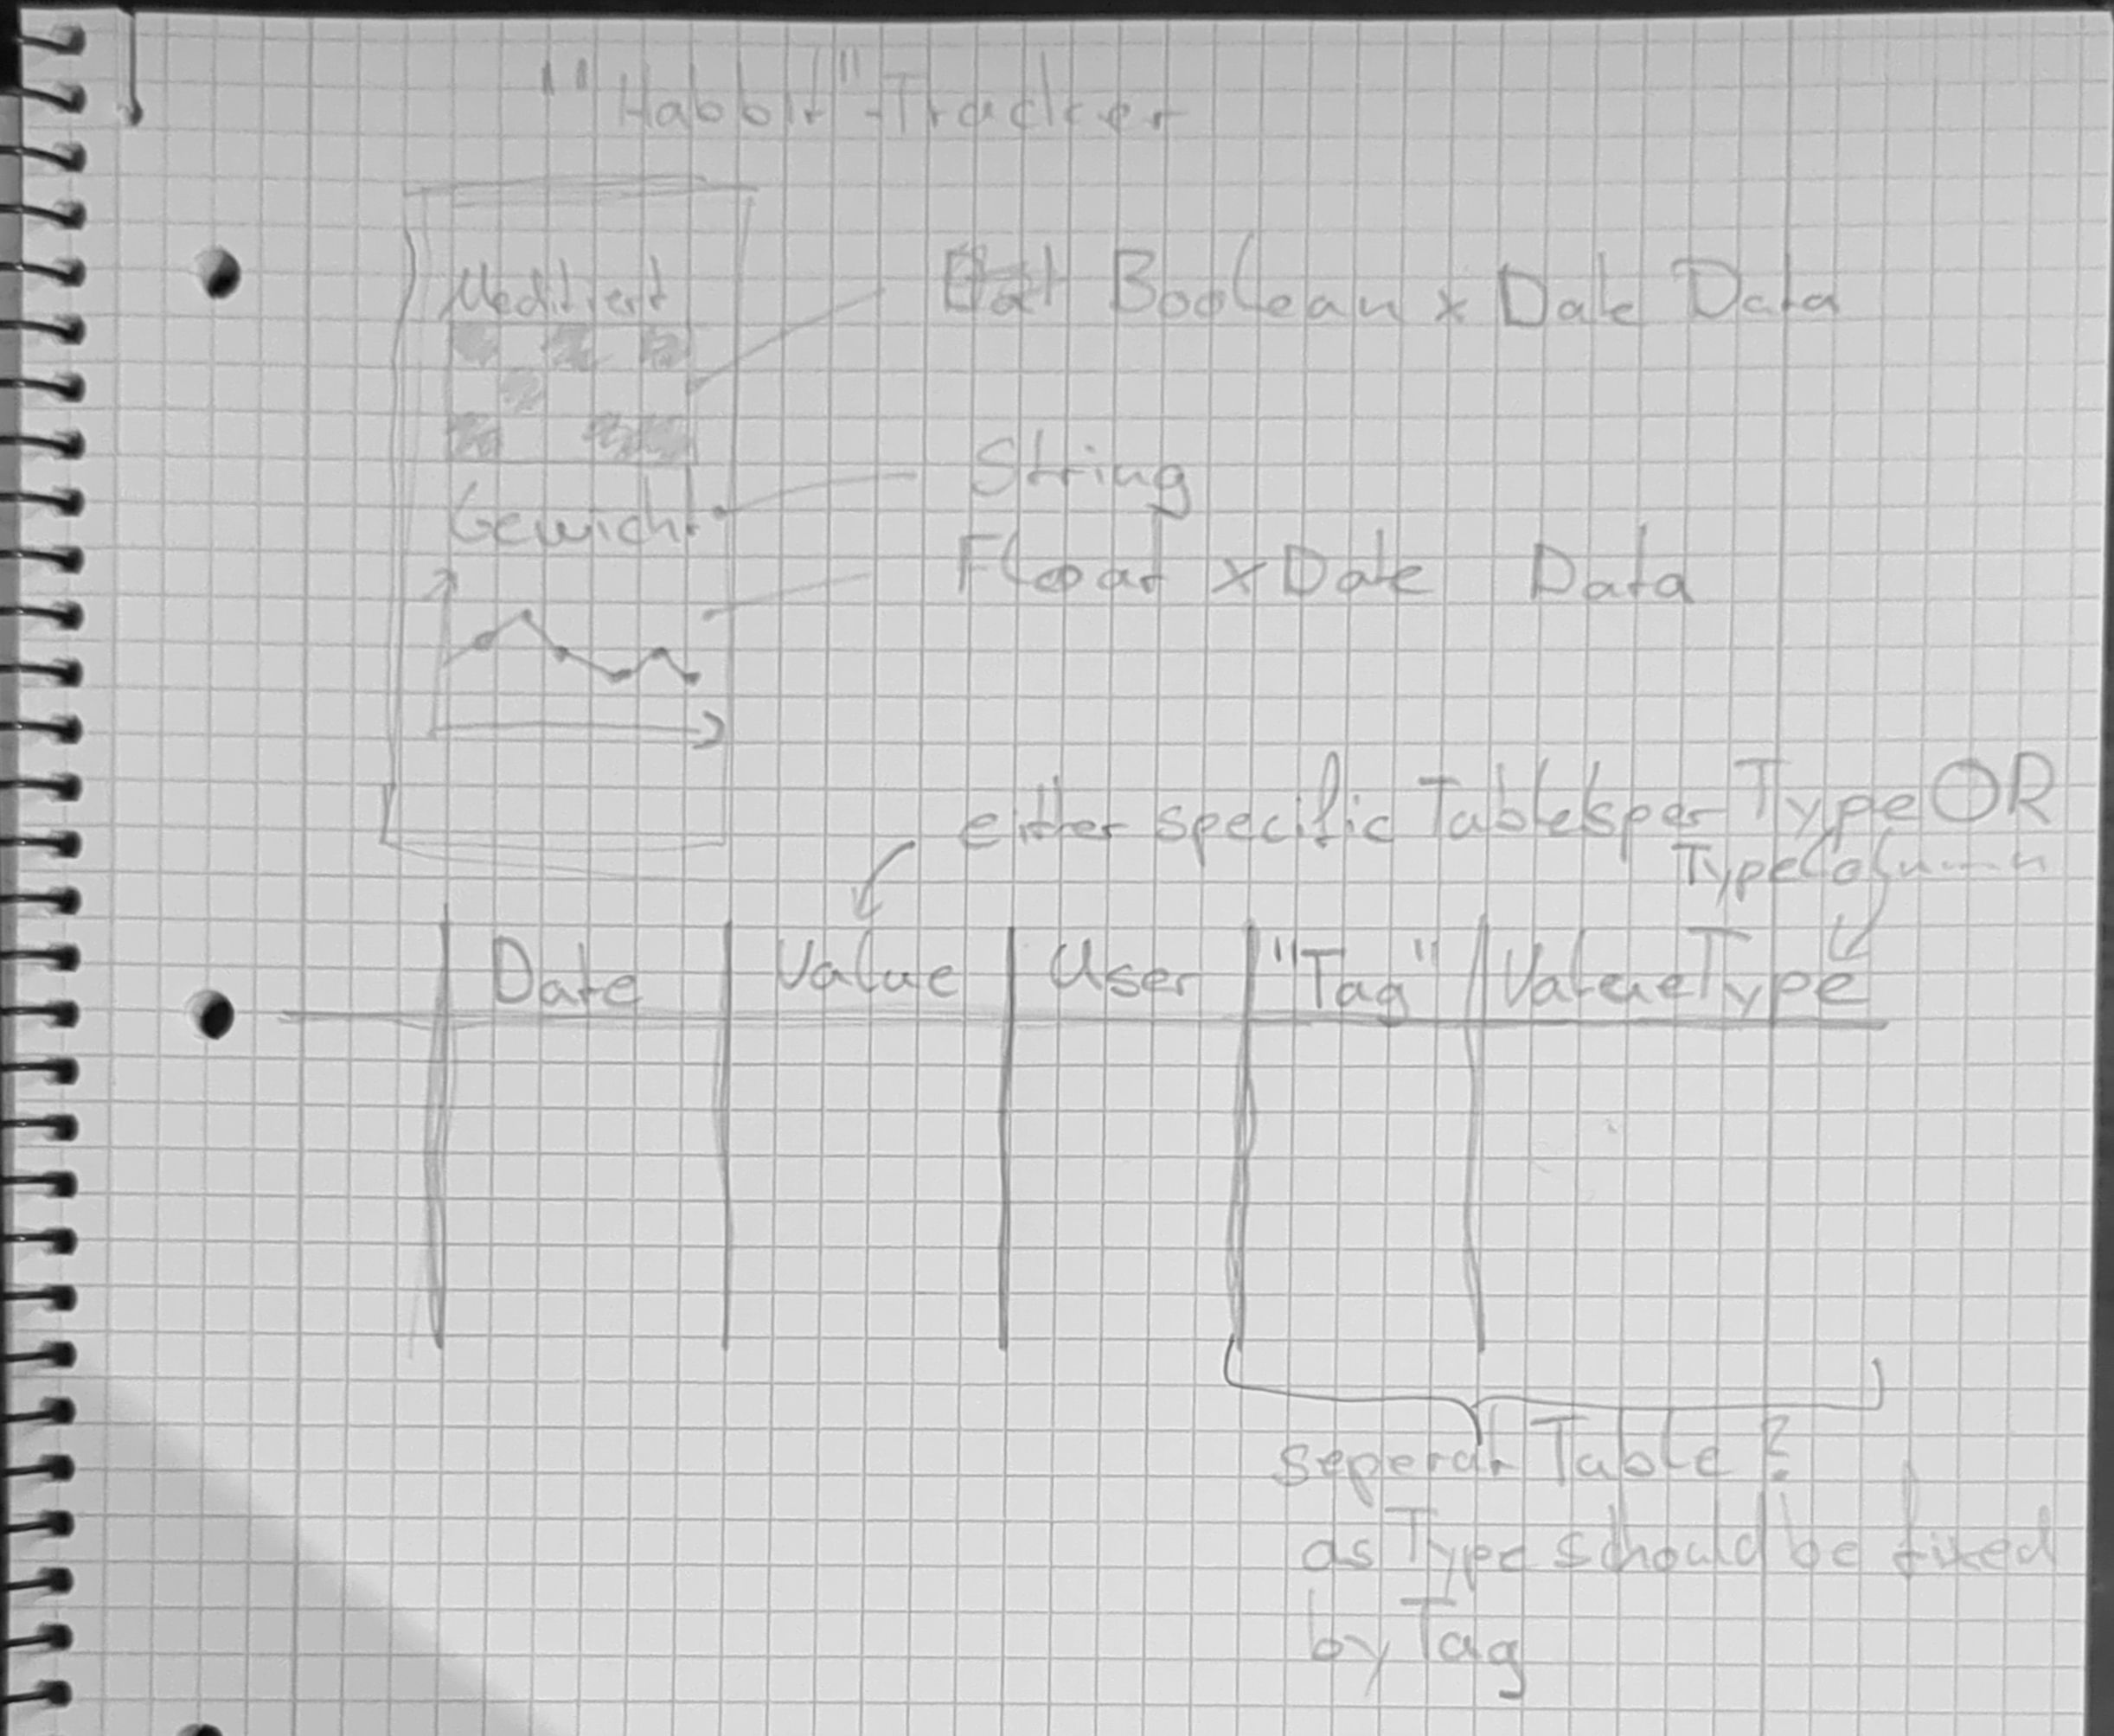 "Habbit"-Tracker
Meditiert
Boolean x Date Data
String
Gewicht
Float x Date Data
either specific Tables per Type OR
TypeColumn
Date Value User "Tag" ValueType
seperat Table?
as Type should be fixed
by Tag